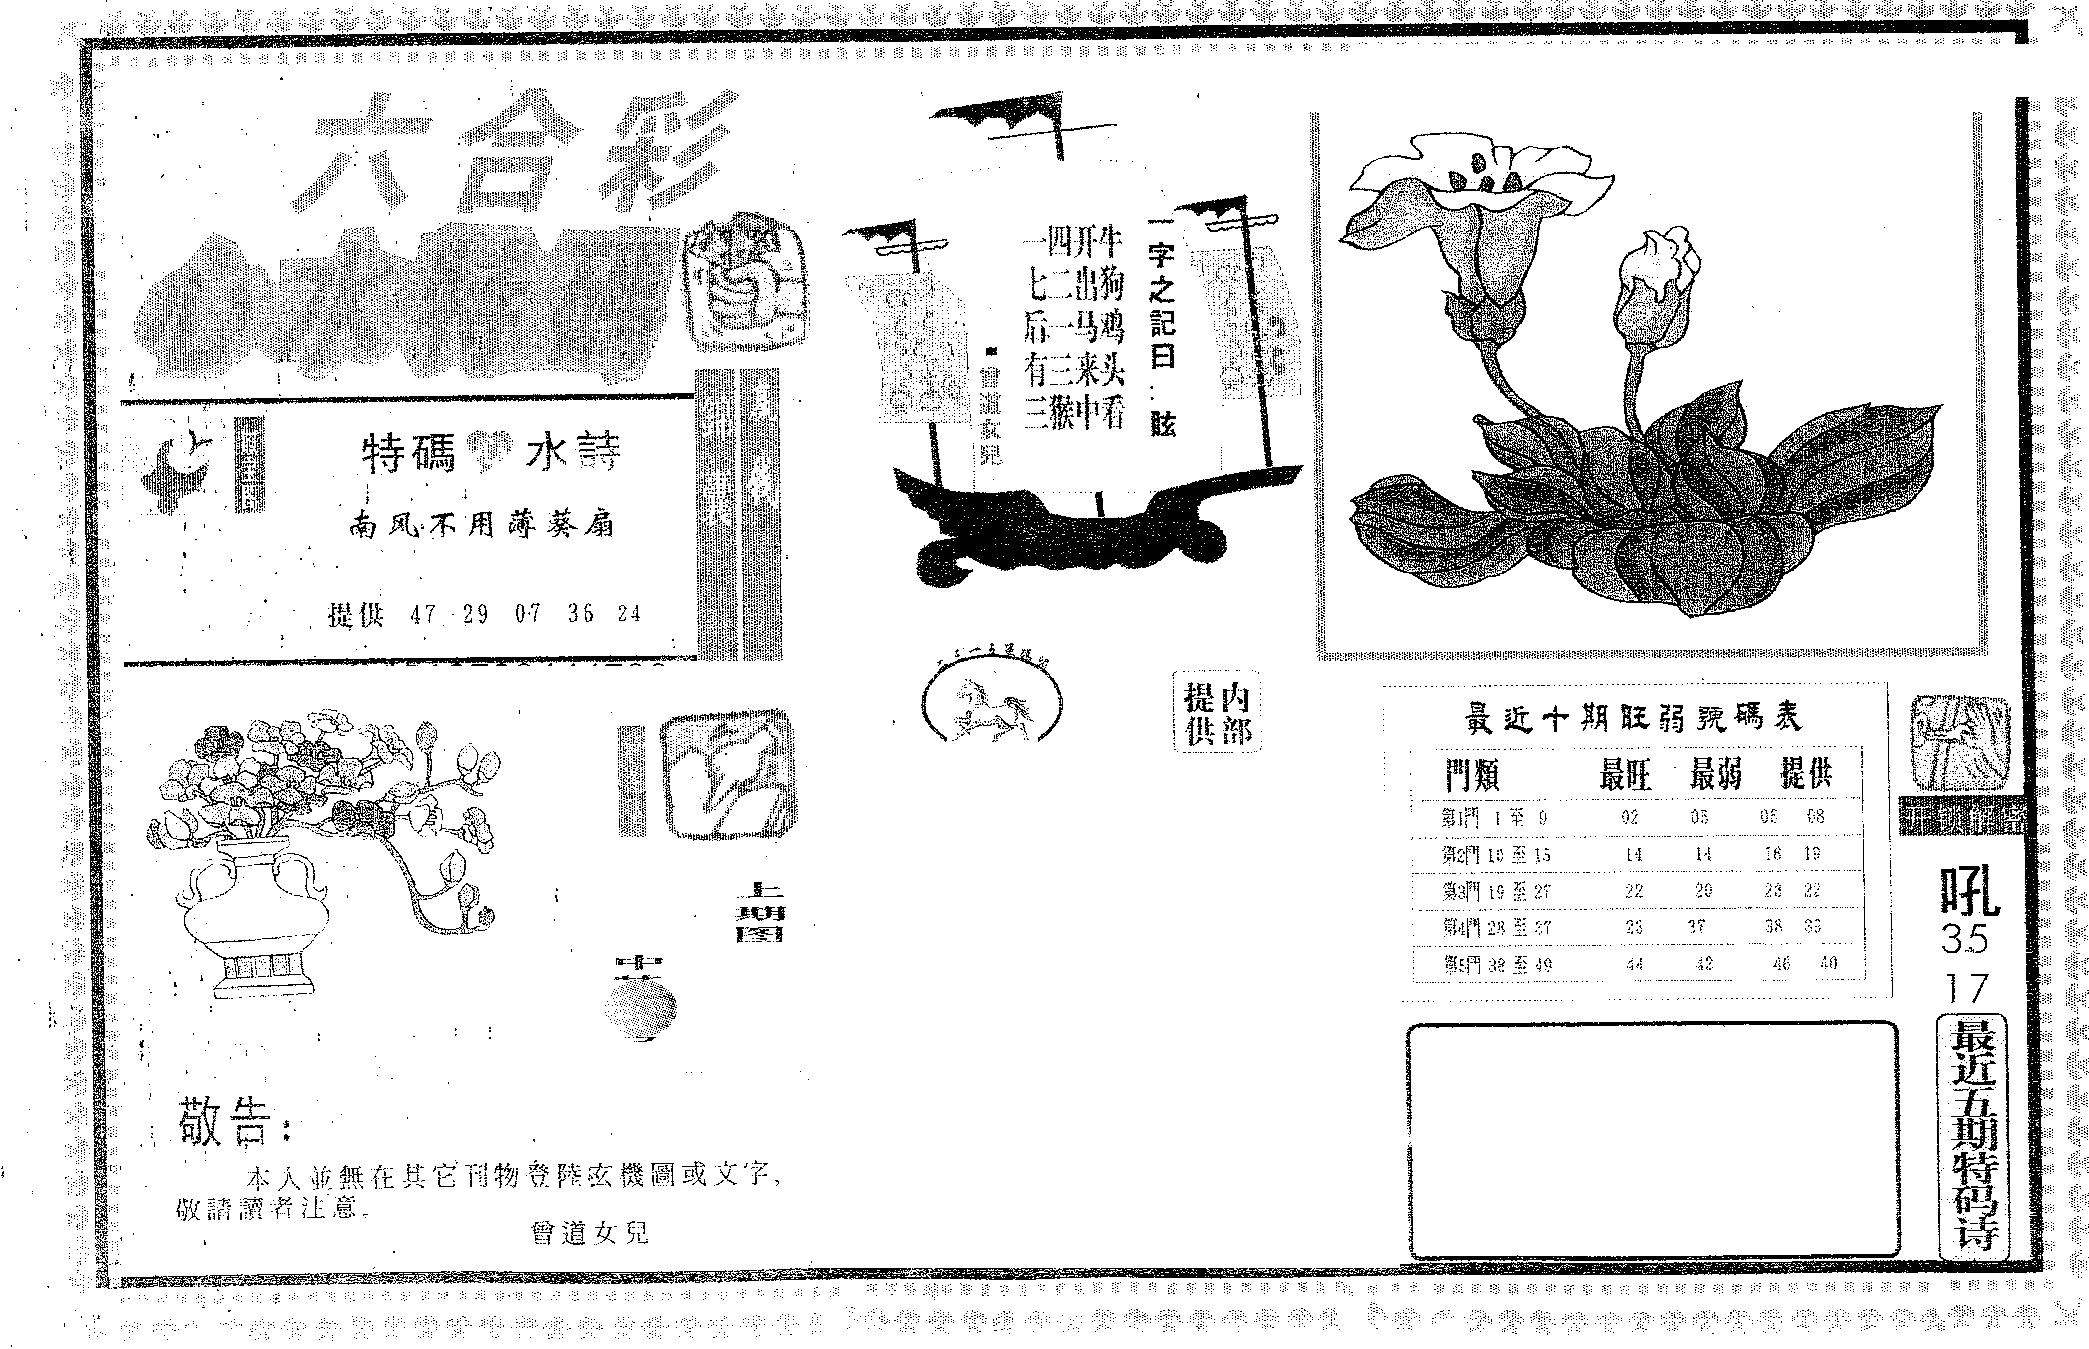 六合彩
特碼 水詩
南风不用薄葵扇
提供 47 29 07 36 24
一字之記曰：眩
牛狗鸡头看
开出马来中
四二一三猴
一七后有三
曾道女兒
内部
提供
最近十期旺弱號碼表
門類 最旺 最弱 提供
第1門 1 至 9 02 05 06 08
第2門 10 至 15 14 14 16 19
第3門 19 至 27 22 20 23 22
第4門 28 至 37 33 37 38 33
第5門 38 至 49 44 42 46 40
吼
35
17
最近五期特码诗
上期图
中
敬告：
本人並無在其它刊物登陸玄機圖或文字，
敬請讀者注意。
曾道女兒